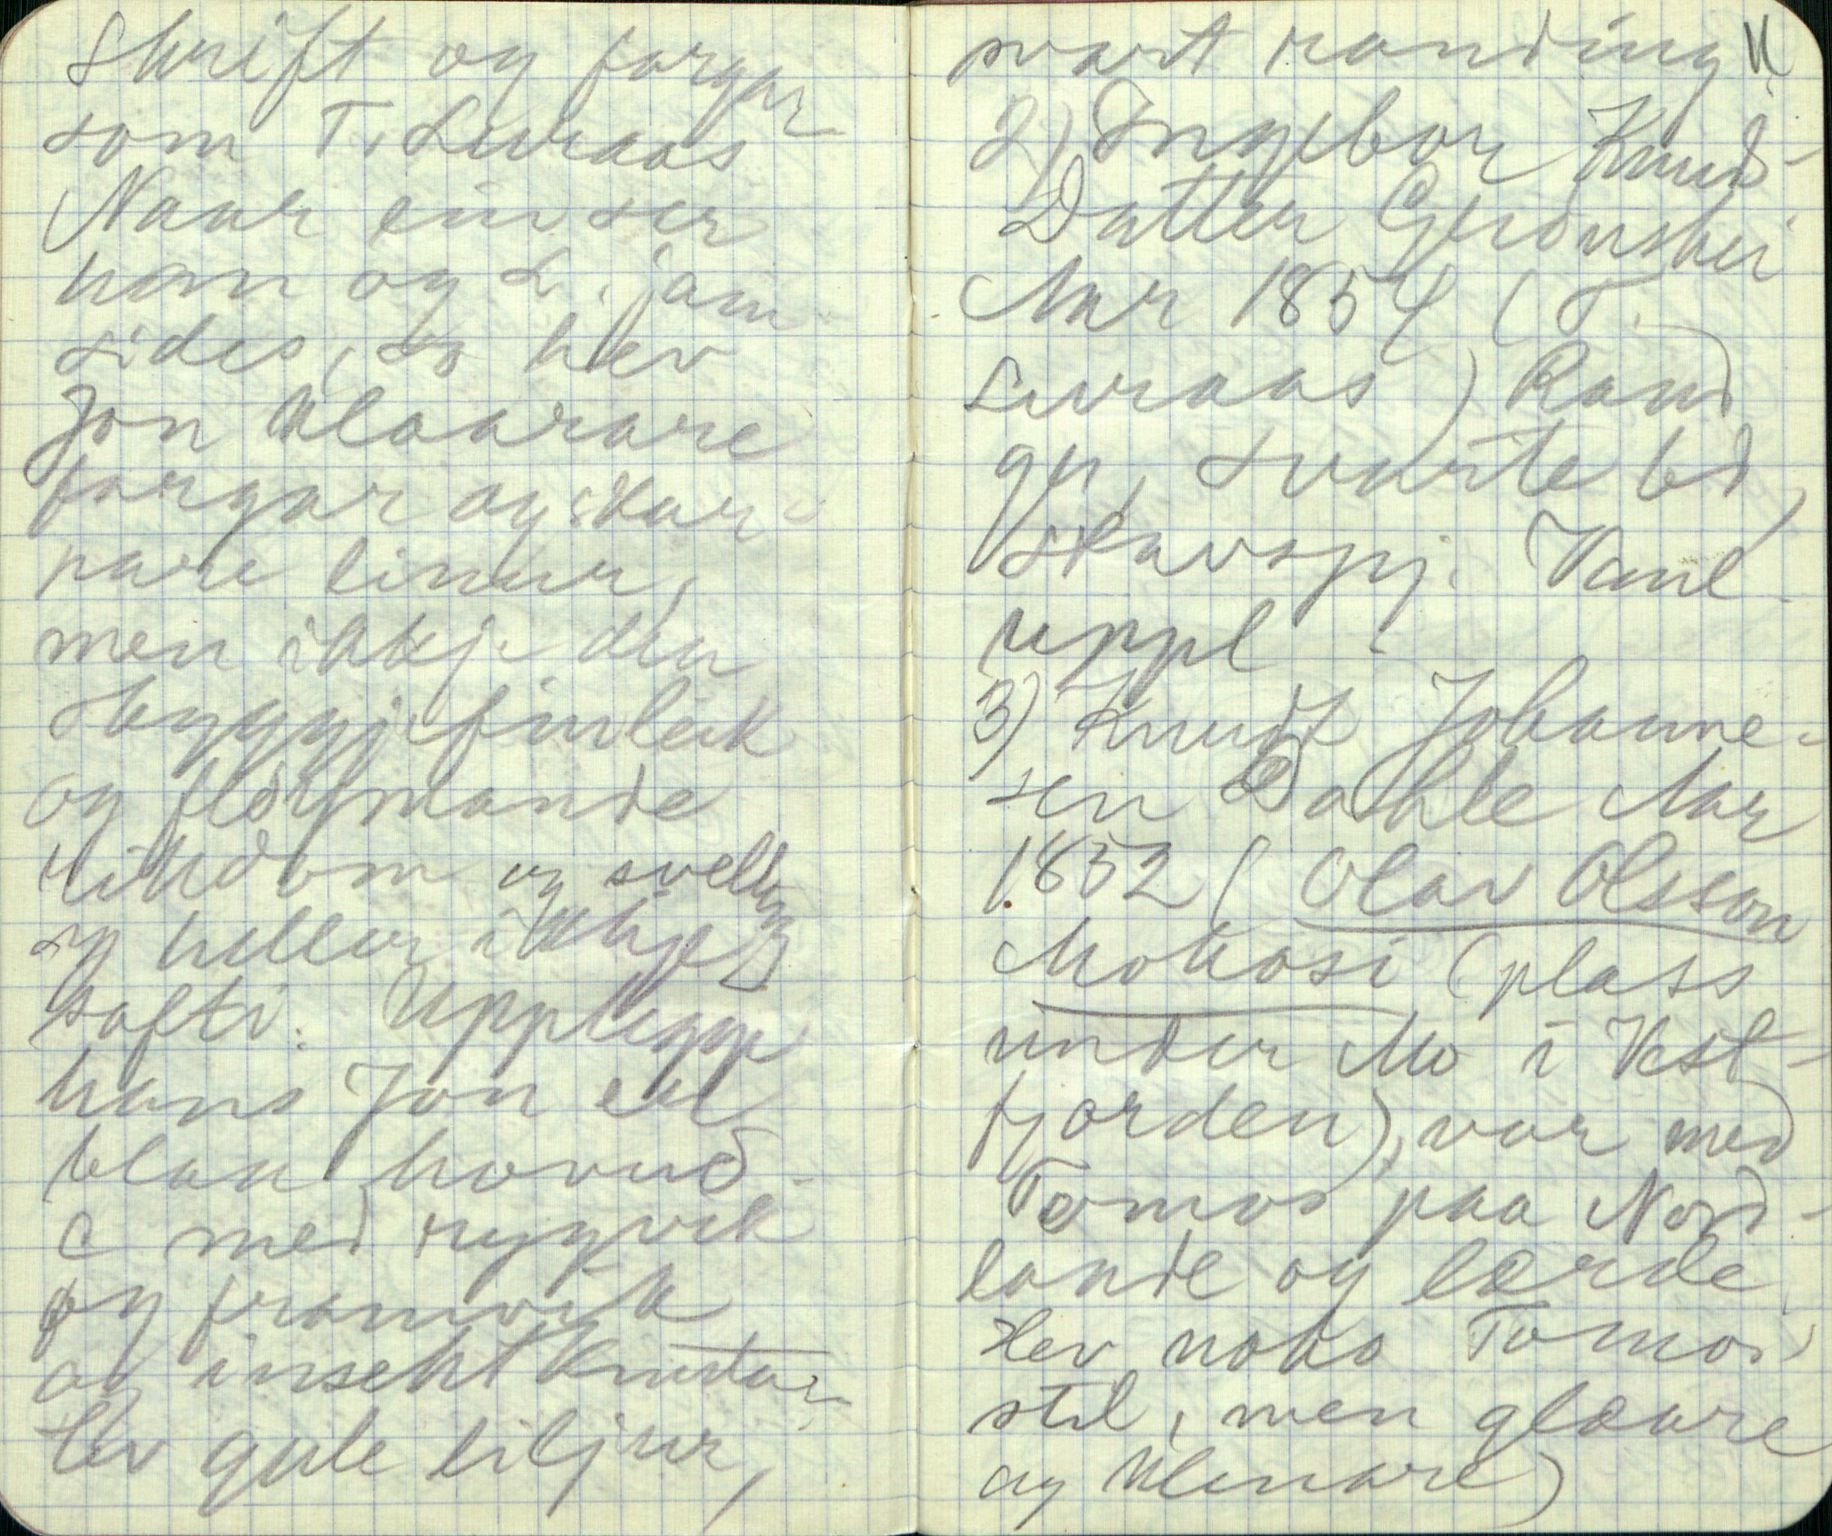 Skrift og fargar
som T. Luraas
Naar ein ser
han og L. jam
sides, so hev
Jon klaarare
fargar og skar-
pare linur,
men ikkje den
skyggjefinleik
og fløymande
rikdom og svelly
og heller ikkje
safti. Upplegge
hans Jon er
blaa hovud-
C med ryggvik
og framvik
og insektknutar
Hev gule liljur,
svart randing
11
2) Ingebor Knuds-
Datter Grønskei
Aar 1854 (T.
Luraas) Raud
gr, svarte bd,
skavspj. Vanl.
uppl.
3) Knudt Johanne-
sen Dahle Aar
1832 (Olav Olsson
Mokosi (plass
under Mo i Vest-
fjorden), var med
Tomos paa Nord-
lande og lærde.
Hev noko Tomos
stil, men glaare
og klenare)